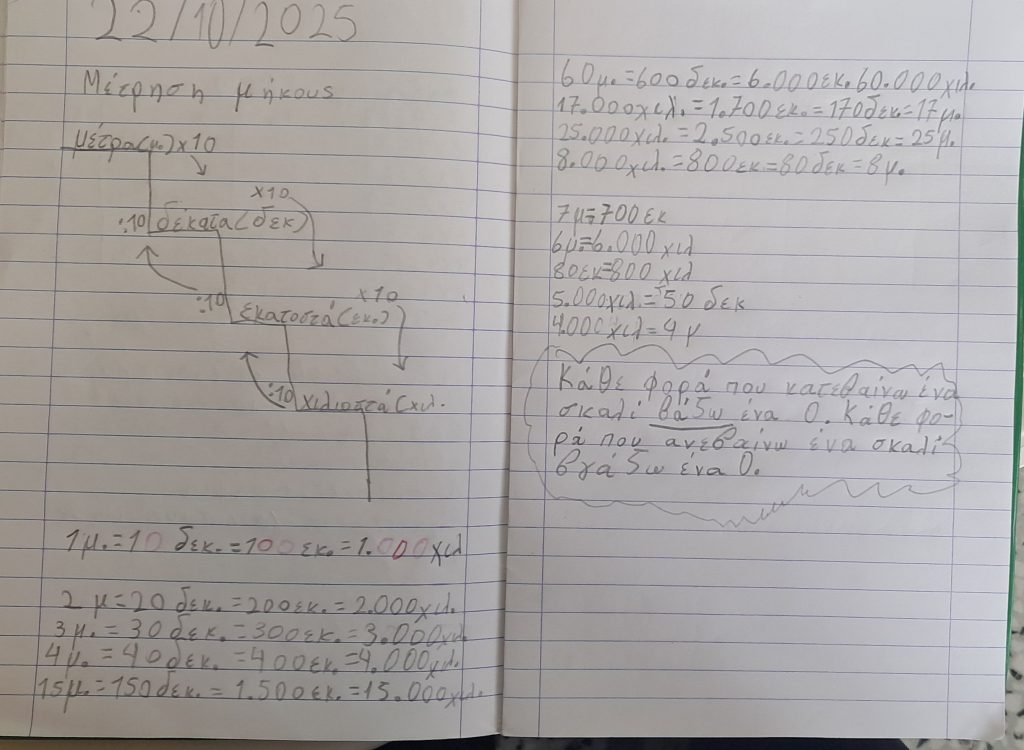 22/10/2025
Μέτρηση μήκους
μέτρα(μ.) x10
x10
:10 δέκατα(δεκ)
x10
:10 εκατοστά(εκ.)
:10 χιλιοστά(χιλ.
1μ.=10 δεκ.=100εκ.=1.000χιλ
2 μ=20 δεκ.=200εκ.=2.000χιλ.
3μ.=30δεκ.=300εκ.=3.000χιλ
4μ.=40δεκ.=400εκ.=4.000χιλ.
15μ.=150δεκ.=1.500εκ.=15.000χιλ.
60μ.=600δεκ.=6.000εκ.60.000χιλ.
17.000χιλ.=1.700εκ.=170δεκ=17μ.
25.000χιλ.=2.500εκ.=250δεκ=25μ.
8.000χιλ.=800εκ=80δεκ=8μ.
7μ=700εκ
6μ=6.000χιλ
80εκ=800 χιλ
5.000χιλ=50 δεκ
4.000χιλ=4 μ
Κάθε φορά που κατεβαίνω ένα
σκαλί βάζω ένα 0. Κάθε φο-
ρά που ανεβαίνω ένα σκαλί
βγάζω ένα 0.